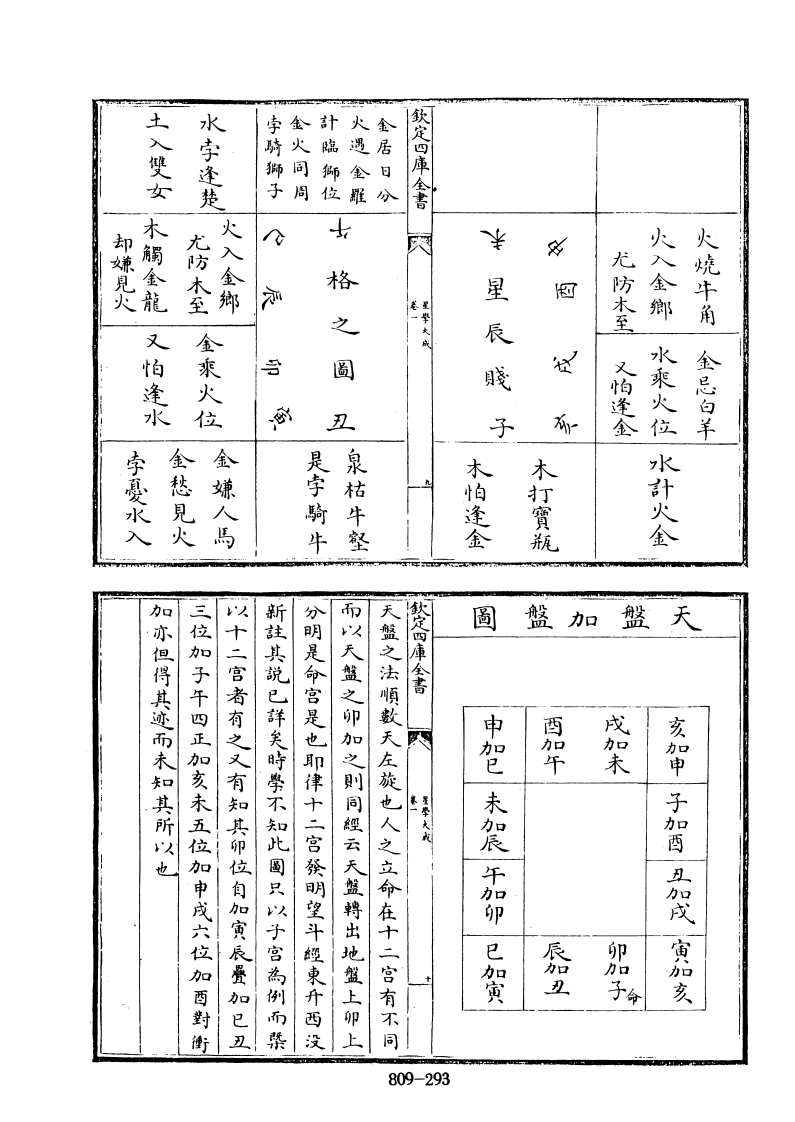 火燒牛角
火入金鄉
尤防木至
金忌白羊
水乘火位
又怕逢金
水計火金
木打寶瓶
木怕逢金
申酉戌亥
未
星辰賤
子
欽定四庫全書
星學大成
卷一
九
金居日分
火遇金羅
計臨獅位
金火同周
孛騎獅子
午
格之圖
丑
巳辰卯寅
泉枯牛壑
是孛騎牛
水孛逢楚
土入雙女
火入金鄉
尤防木至
木觸金龍
却嫌見火
金乘火位
又怕逢水
金嫌人馬
金愁見火
孛憂水入
天盤加盤圖
亥加申
子加酉
丑加戌
寅加亥
戌加未
卯加子命
酉加午
辰加丑
申加巳
未加辰
午加卯
巳加寅
欽定四庫全書
星學大成
卷一
十
天盤之法順數天左旋也人之立命在十二宮有不同
而以天盤之卯加之則同經云天盤轉出地盤上卯上
分明是命宮是也耶律十二宮發明望斗經東升西没
新註其説已詳矣時學不知此圖只以子宮為例而槩
以十二宮者有之又有知其卯位自加寅辰疊加巳丑
三位加子午四正加亥未五位加申戌六位加酉對衝
加亦但得其迹而未知其所以也
809-293